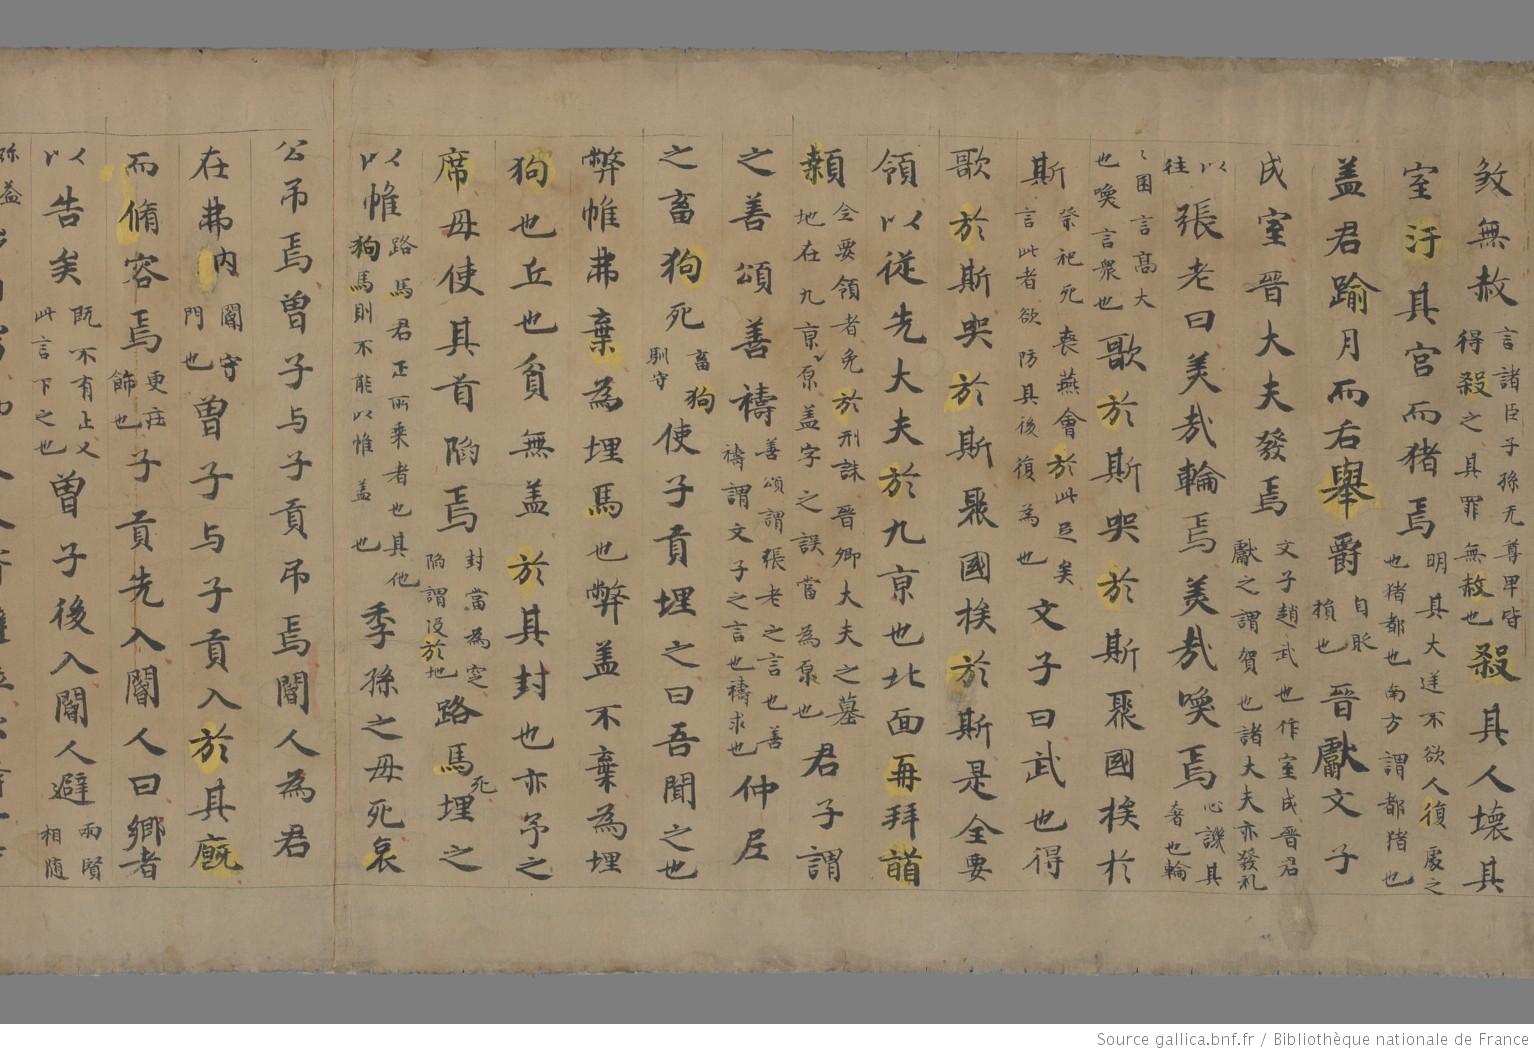 煞無赦言諸臣子孫无尊卑皆得殺之其罪無赦也殺其人壞其
室汙其宮而猪焉明其大逆不欲人復處之也猪都也南方謂都猪也
盖君踰月而后舉爵自貶損也晉獻文子
成室晉大夫發焉文子趙武也作室成晉君獻之謂賀也諸大夫亦發礼
以往張老曰美哉輪焉美哉奐焉心譏其奢也輪
輪囷言髙大也奐言衆也歌於斯哭於斯聚國族於
斯祭祀死喪燕會於此足矣言此者欲防其後復為也文子曰武也得
歌於斯哭於斯聚國族於斯是全要
領以從先大夫於九京也北面再拜䭫
顙全要領者免於刑誅晉卿大夫之墓地在九京原盖字之誤當為原也君子謂
之善頌善禱善頌謂張老之言也善禱謂文子之言也禱求也仲尼
之畜狗死畜狗馴守使子貢埋之曰吾聞之也
弊帷弗棄為埋馬也弊盖不棄為埋
狗也丘也貧無盖於其封也亦予之
席毋使其首陷焉封當為窆陷謂没於地路馬死埋之
以帷路馬君正所乘者也其他狗馬則不能以帷盖也季孫之母死哀
公吊焉曽子与子貢吊焉閽人為君
在弗内閽守門也曽子与子貢入於其廐
而脩容焉更莊飾也子貢先入閽人曰鄉者
以告矣既不有止又此言下之也曽子後入閽人避兩賢相随
Source gallica.bnf.fr / Bibliothèque nationale de France